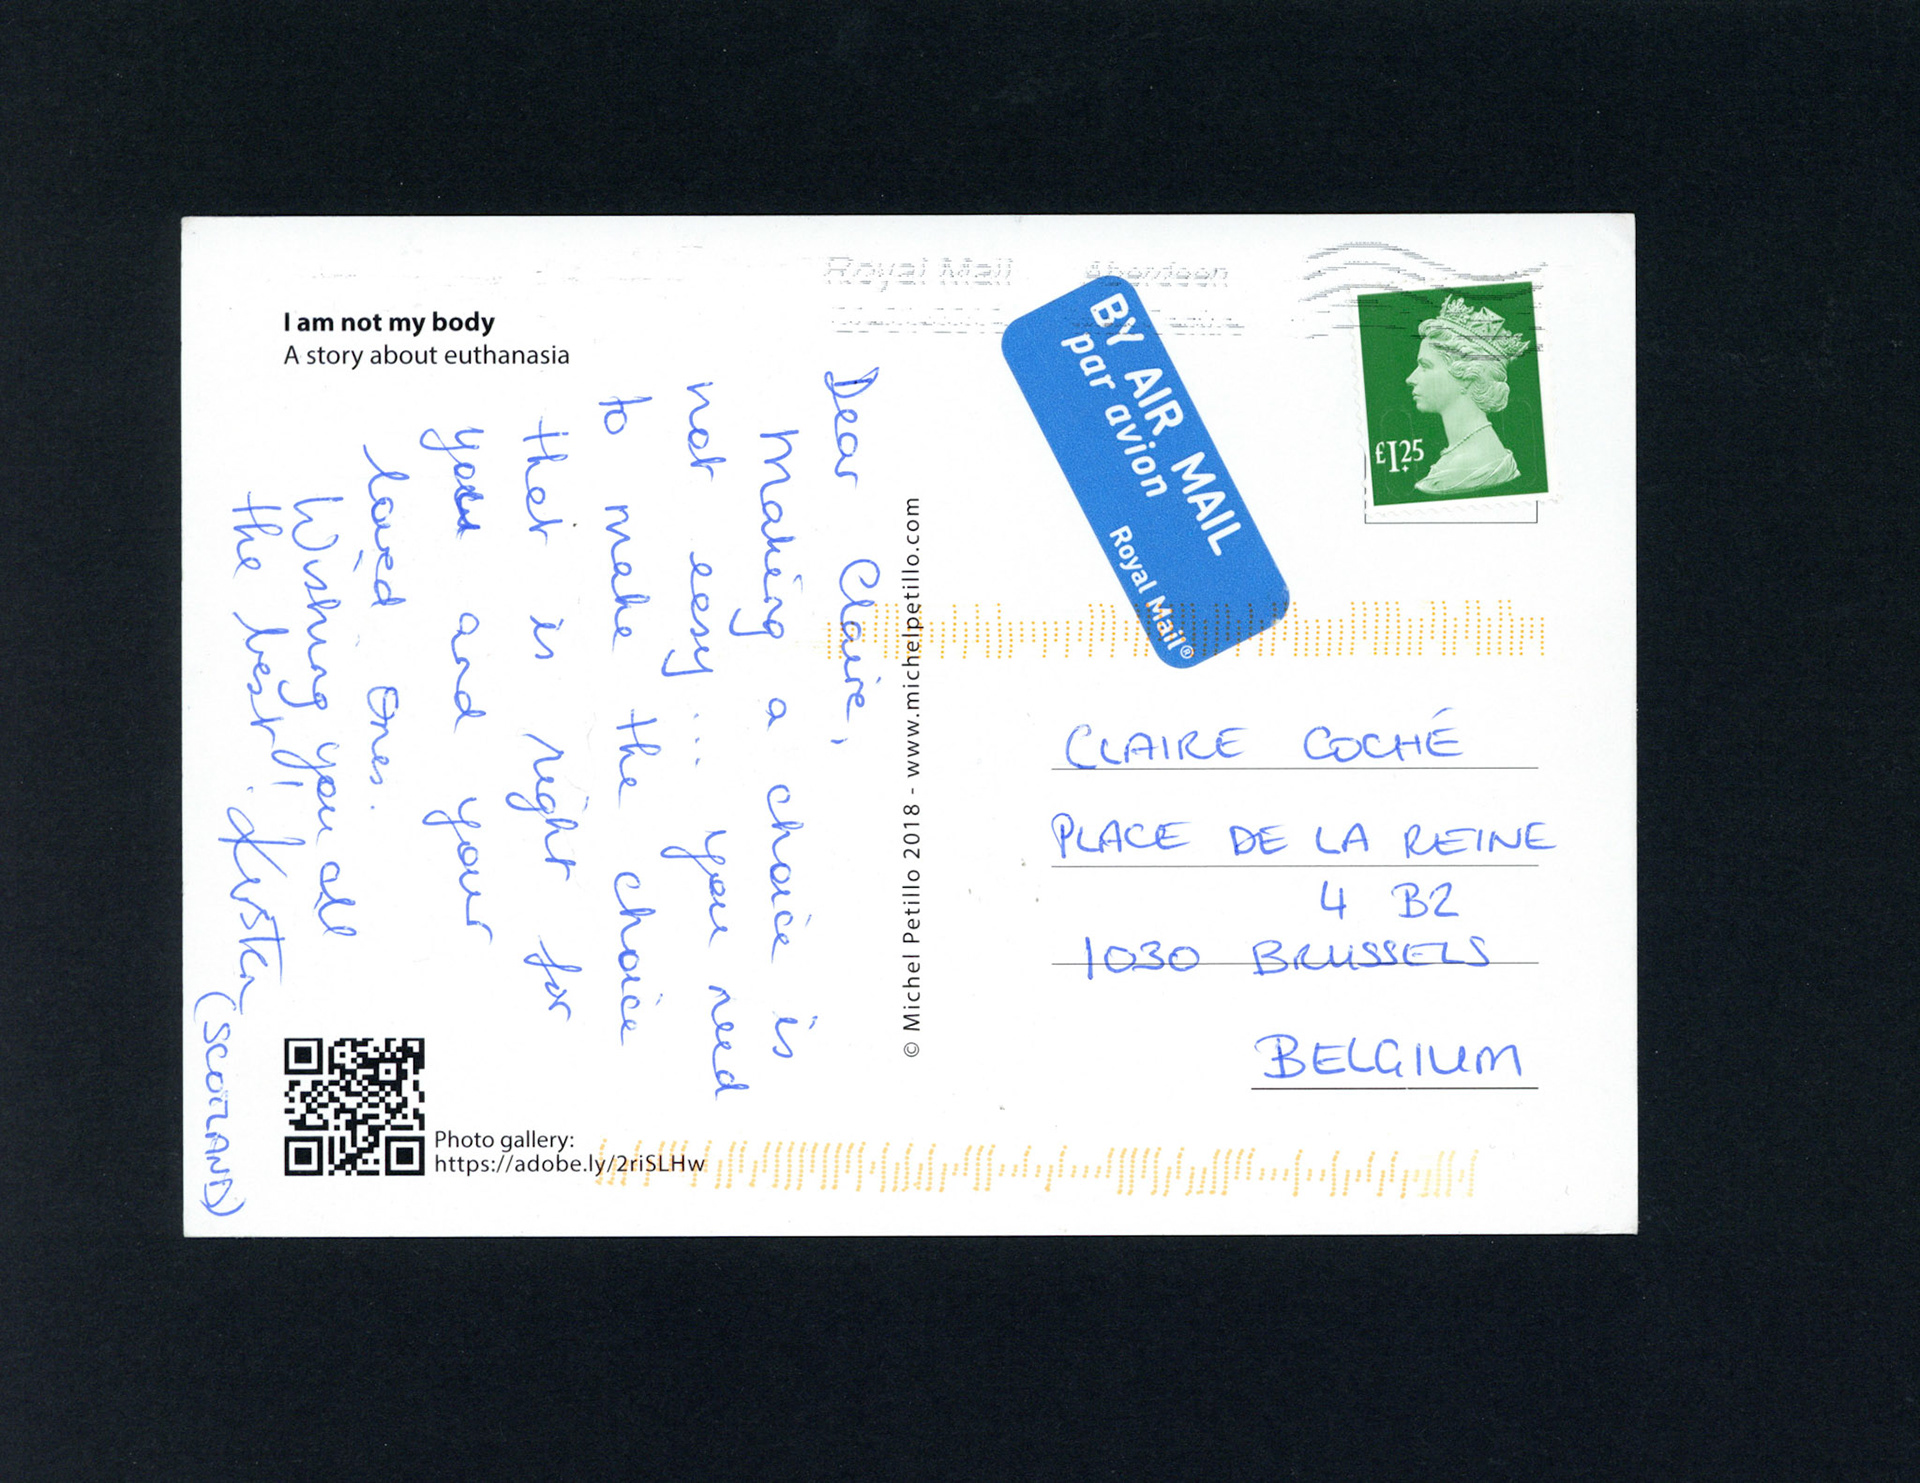 Royal Mail Aberdeen
I am not my body
A story about euthanasia
Dear Claire,
Making a choice is
not easy... you need
to make the choice
that is right for
you and your
loved ones.
Wishing you all
the best!
Kirsten
(SCOTLAND)
Photo gallery:
https://adobe.ly/2riSLHw
© Michel Petillo 2018 - www.michelpetillo.com
BY AIR MAIL
par avion
Royal Mail®
£1.25
CLAIRE COCHÉ
PLACE DE LA REINE
4 B2
1030 BRUSSELS
BELGIUM